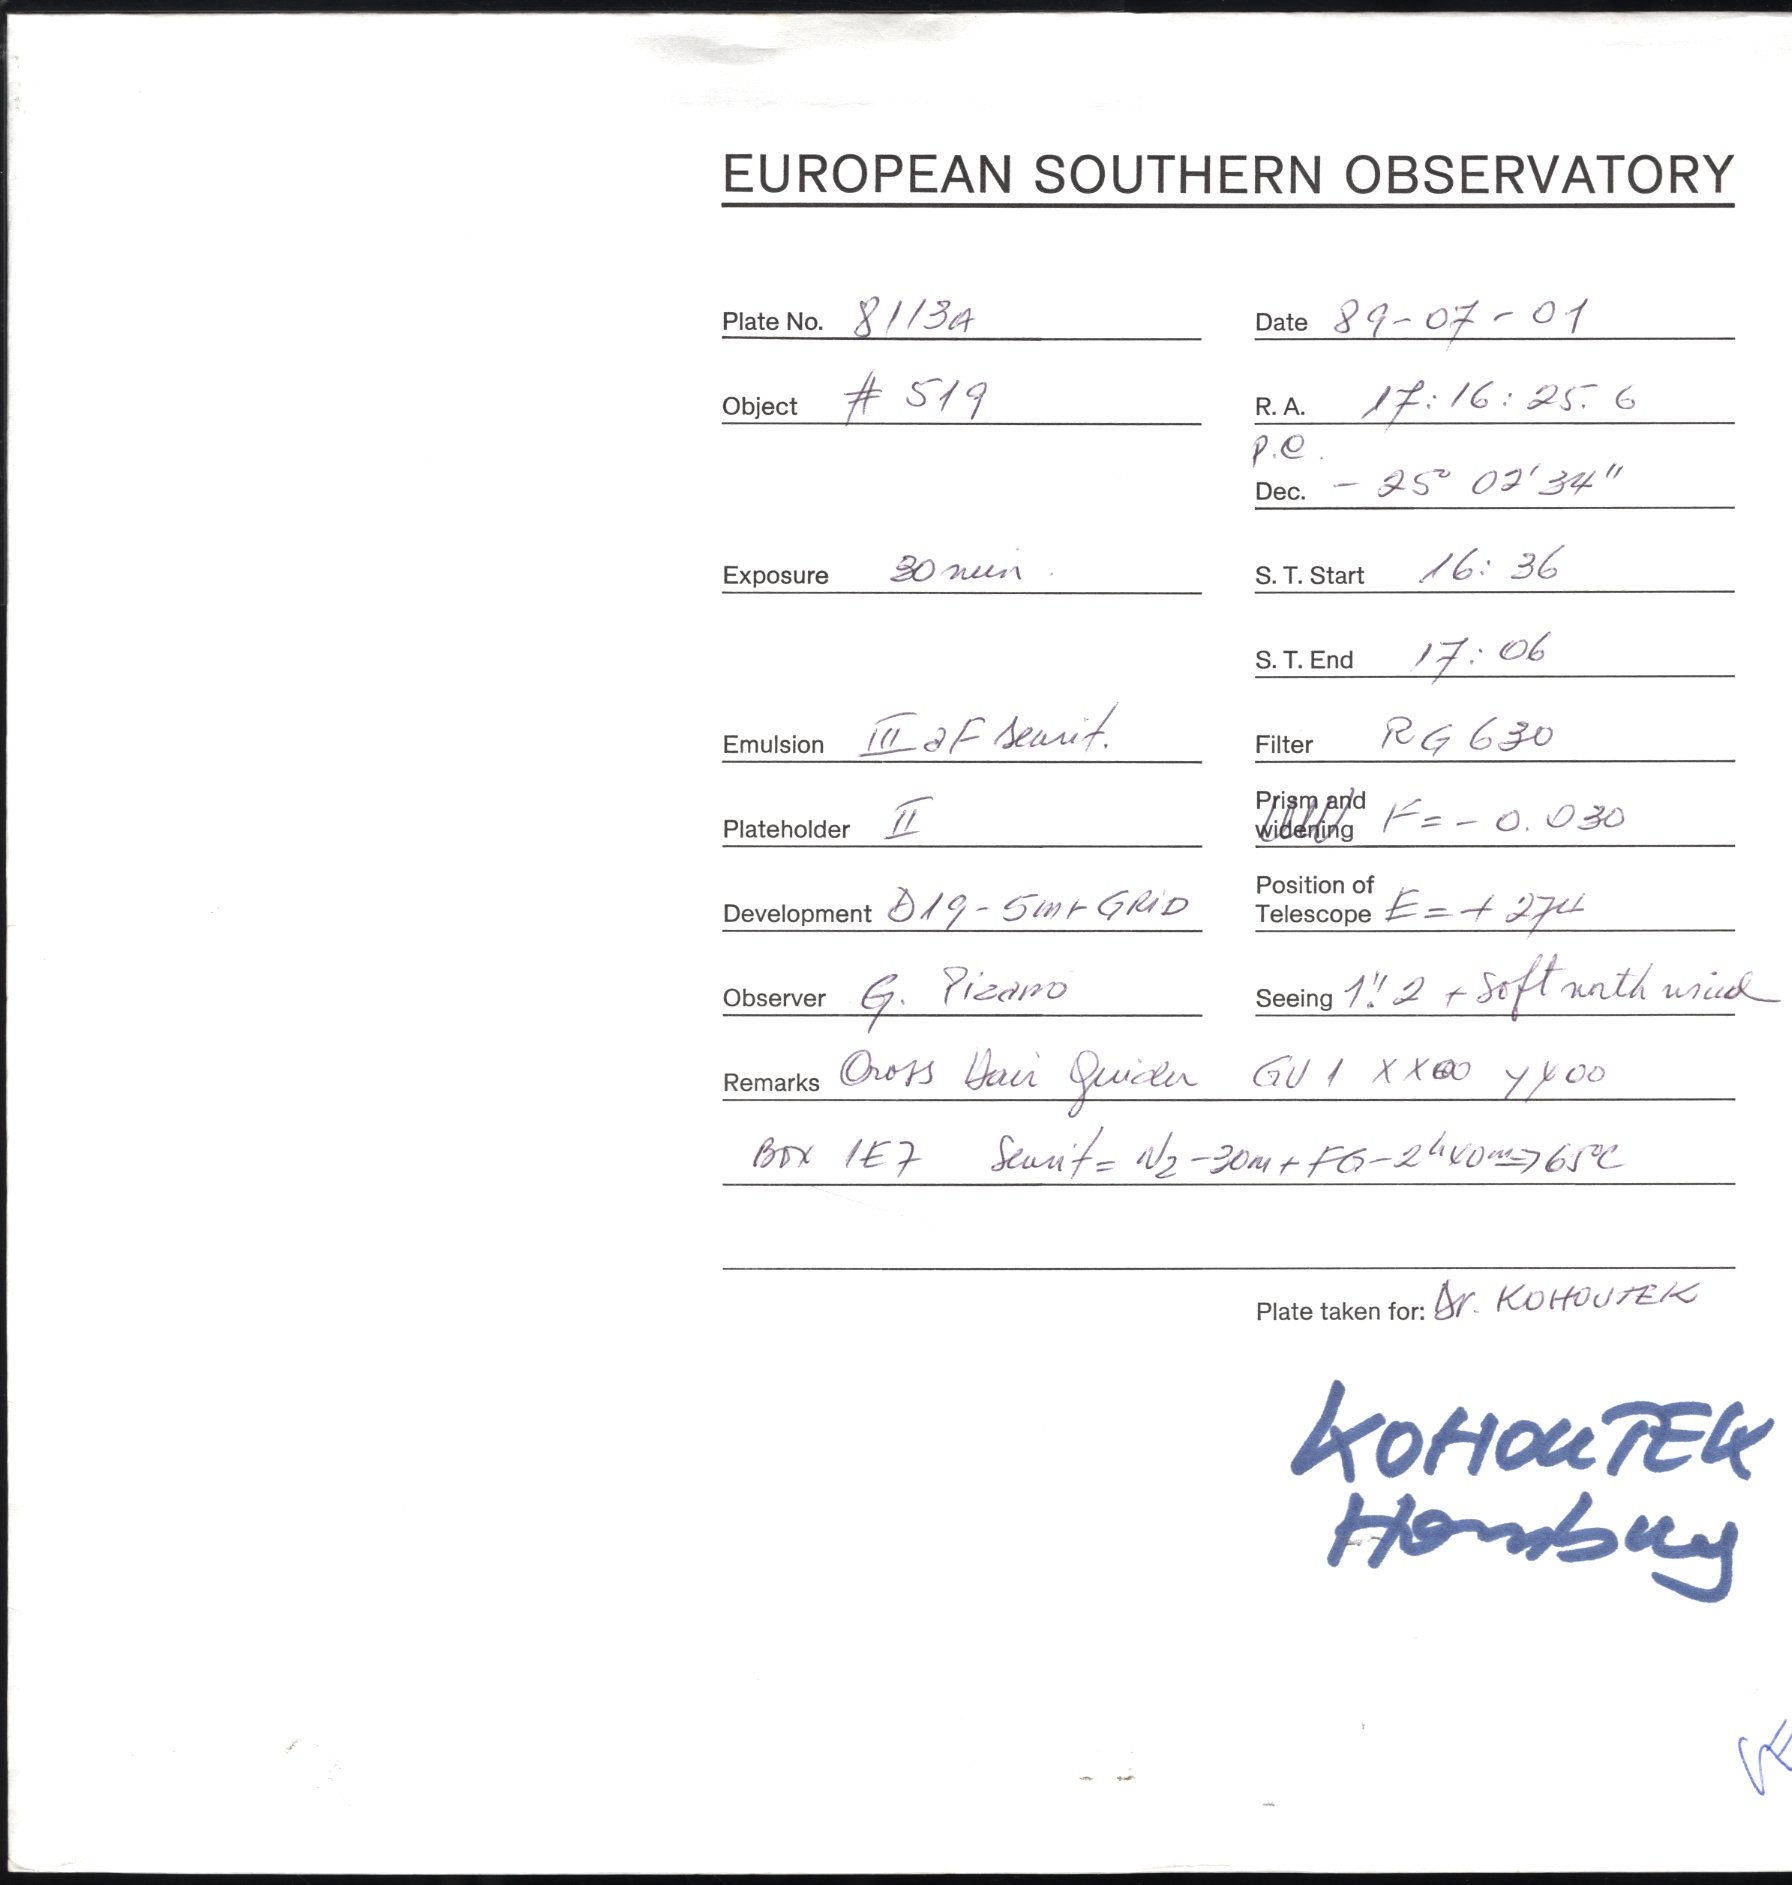 EUROPEAN SOUTHERN OBSERVATORY
Plate No. 8113A Date 89-07-01
Object # 519 R. A. 17:16:25.6
P.C.
Dec. - 25° 02' 34"
Exposure 30 min. S. T. Start 16:36
S. T. End 17:06
Emulsion III aF sensit. Filter RG 630
Plateholder II Prism and widening F = - 0.030
Development D19 - 5m + GRID Position of Telescope E = + 274
Observer G. Pizarro Seeing 1".2 + Soft north wind
Remarks Cross Hair Guider GV 1 XX00 YY00
BOX 1E7 Sensit = N2 - 30m + FG - 2h40m => 65°C
Plate taken for: Dr. KOHOUTEK
KOHOUTEK
Hamburg